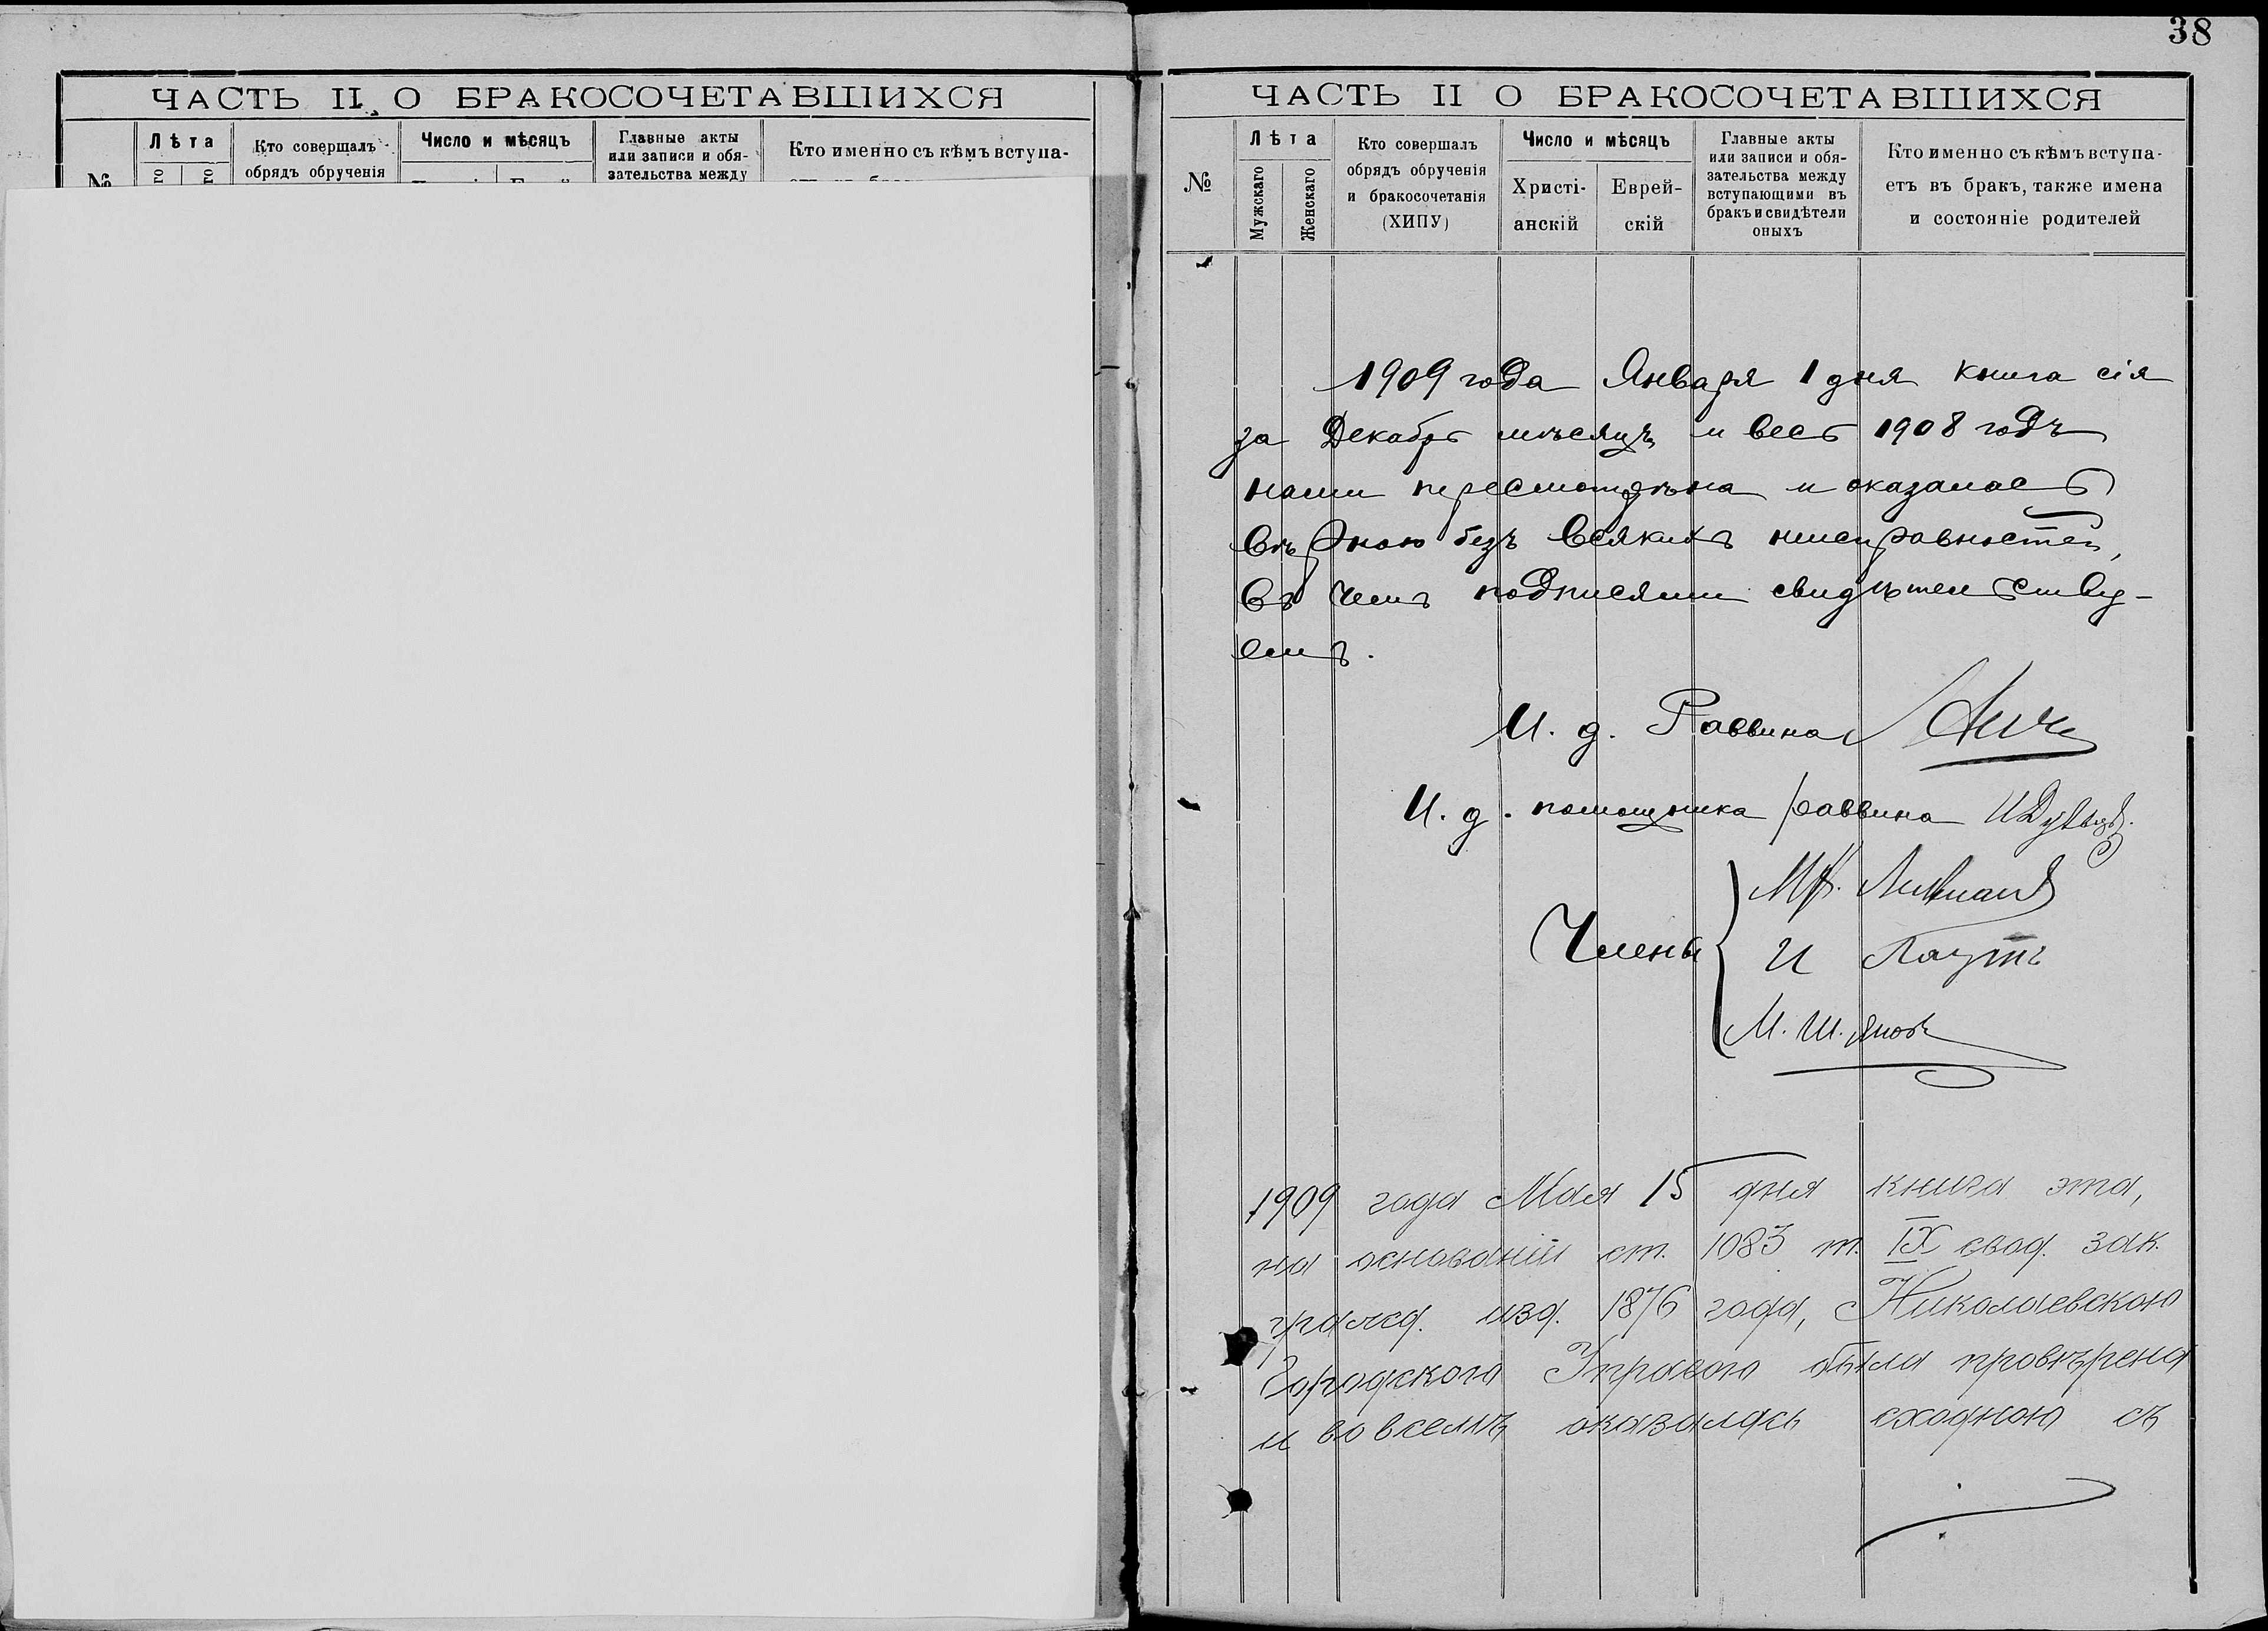 38
ЧАСТЬ II О БРАКОСОЧЕТАВШИХСЯ
№
Лѣта
Кто совершалъ
обрядъ обрученія
Число и мѣсяцъ
Главные акты
или записи и обя-
зательства между
Кто именно съ кѣмъ вступа-
ЧАСТЬ II О БРАКОСОЧЕТАВШИХСЯ
№
Лѣта
Мужскаго
Женскаго
Кто совершалъ
обрядъ обрученія
и бракосочетанія
(ХИПУ)
Число и мѣсяцъ
Христі-
анскій
Еврей-
скій
Главные акты
или записи и обя-
зательства между
вступающими въ
бракъ и свидѣтели
оныхъ
Кто именно съ кѣмъ вступа-
етъ въ бракъ, также имена
и состояніе родителей
1909 года Января 1 дня книга сія
за Декабрь мѣсяцъ и весь 1908 годъ
нами пересмотрѣна и оказалась
вѣрною безъ всякихъ неисправностей,
въ чемъ подписями свидѣтельству-
емъ.
И. д. Раввина
И. д. помощника раввина
Члены
И
М. Ш.
1909 года Мая 15 дня книга эта,
на основаніи ст. 1083 т. IX свод. зак.
гражд. изд. 1876 года, Николаевскою
Городскою Управою была провѣрена
и во всемъ оказалась сходною съ